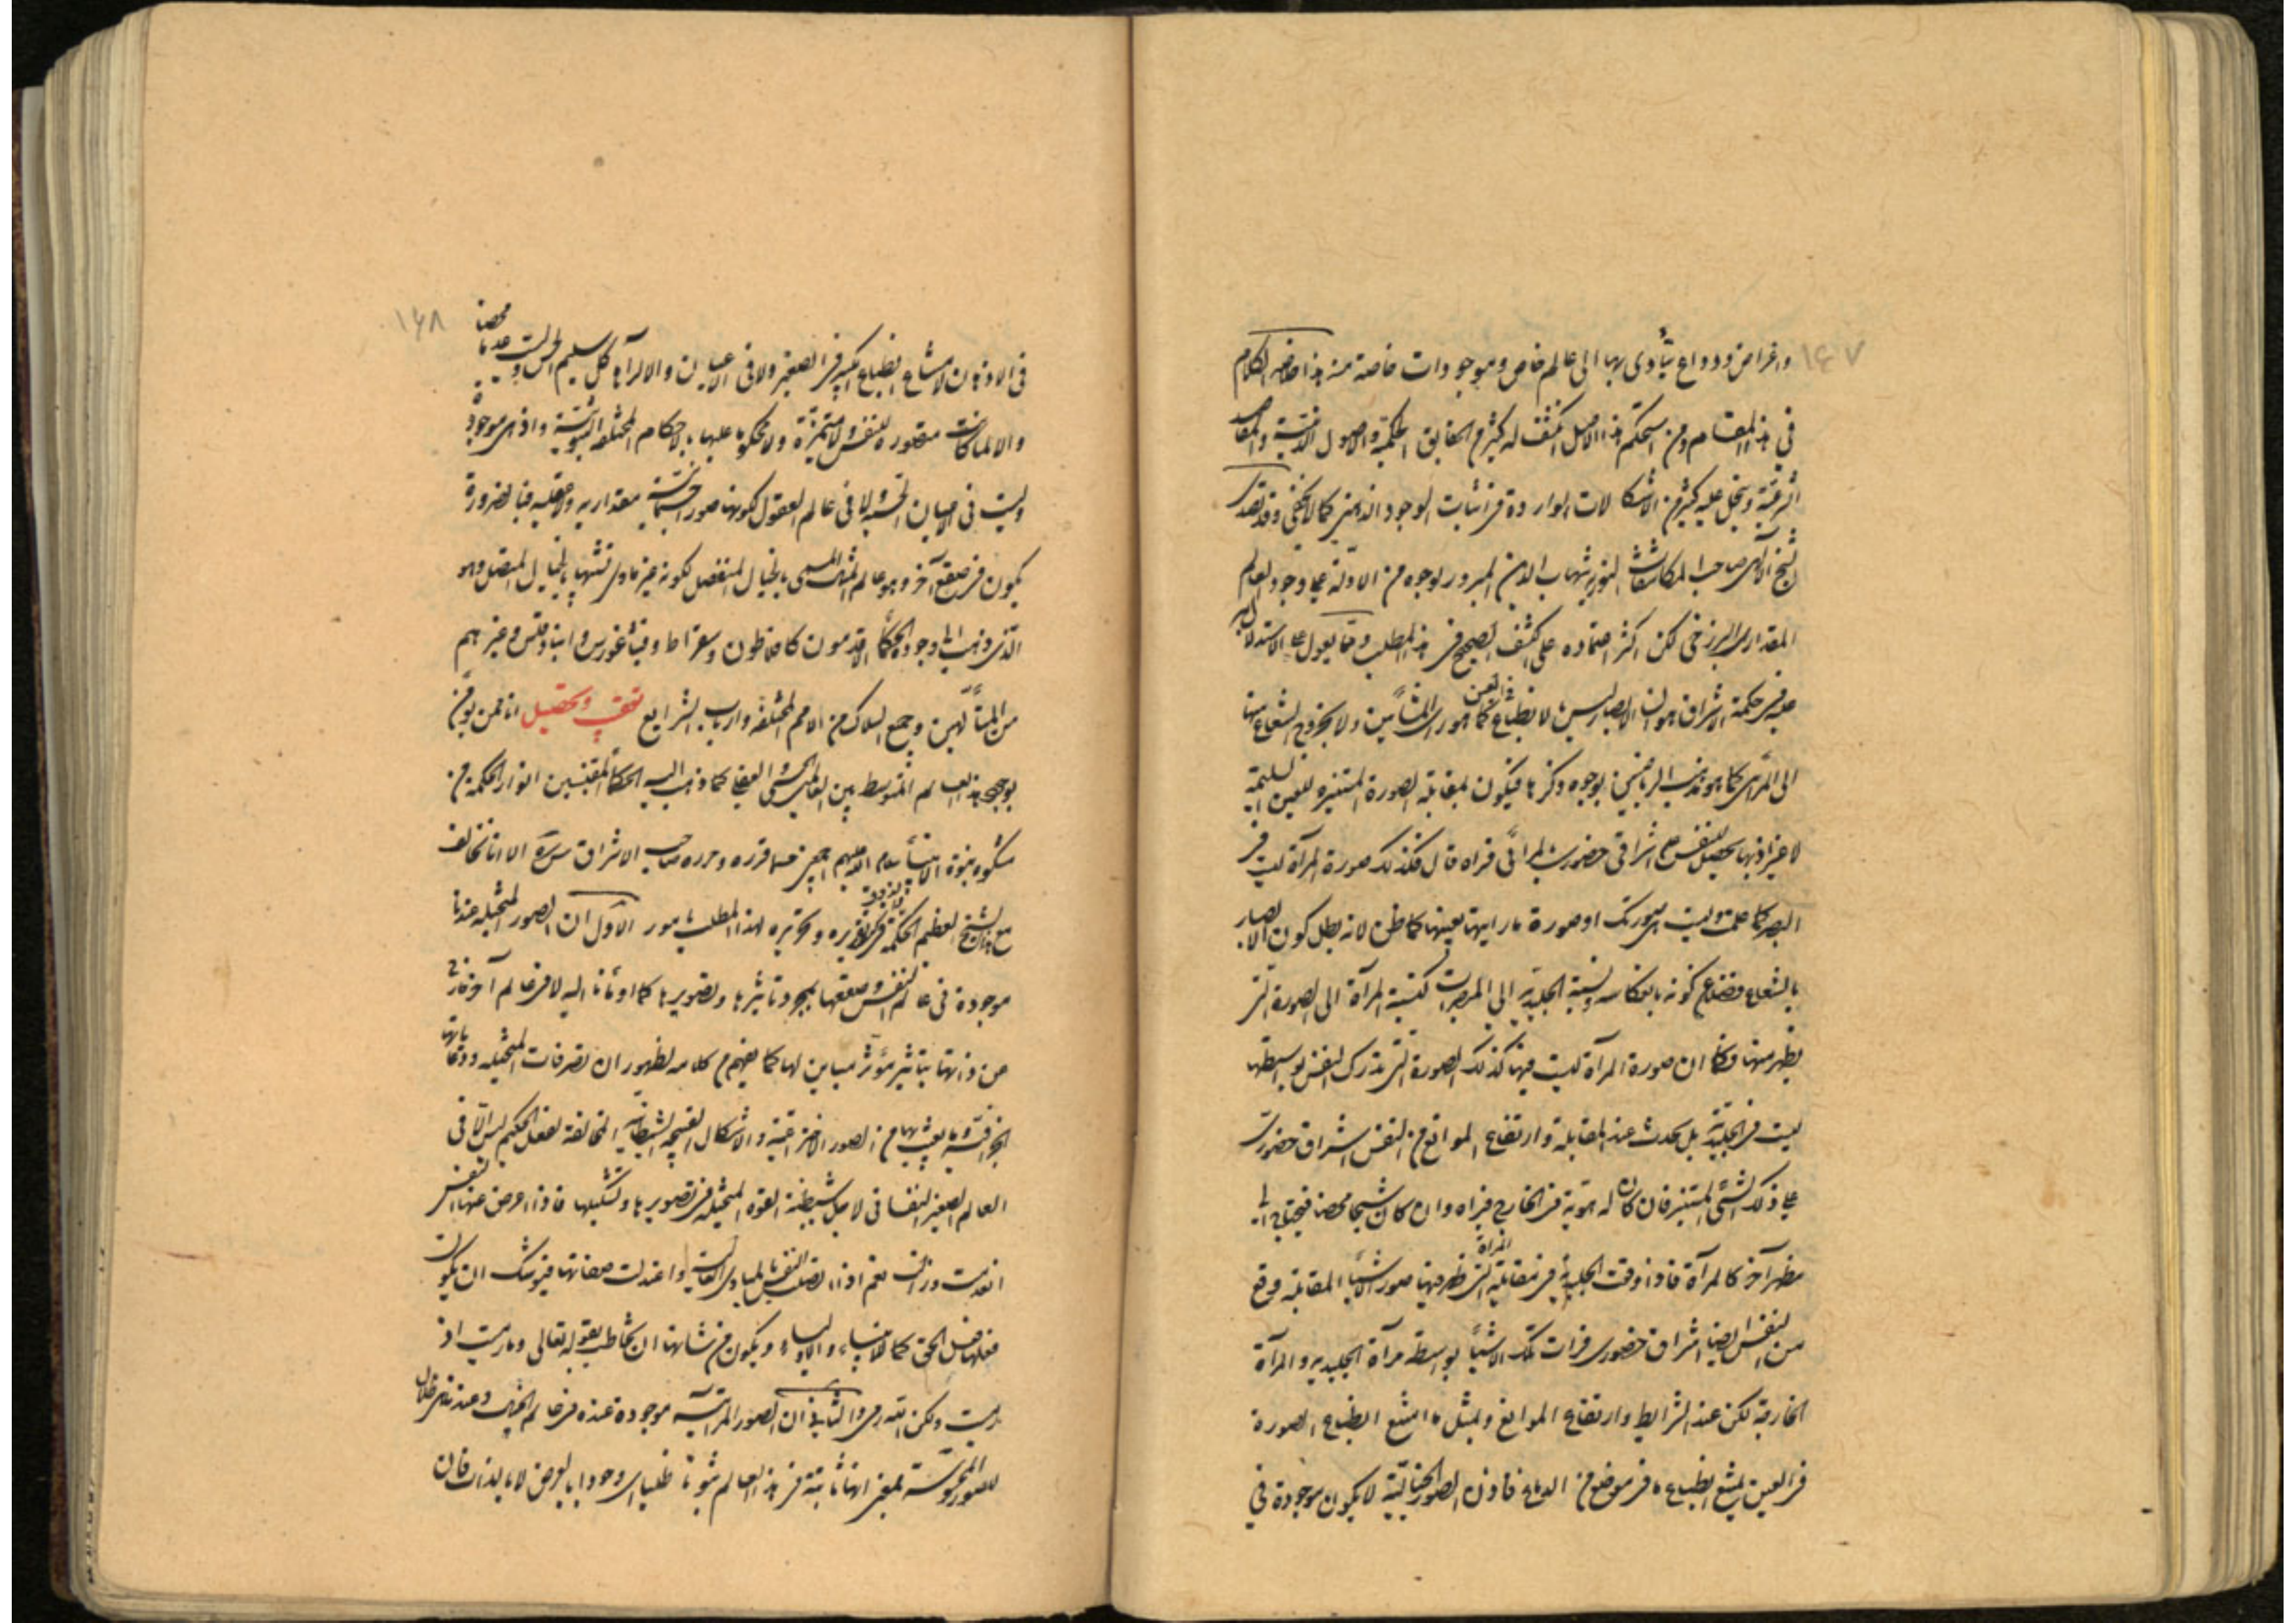 ١٤٧
واغراض ودواع يتأدى بها الى عالم خاص وموجودات خاصة منه هذا خلاصة الكلام
في هذا المقام ومن استحكم هذا الاصل انكشف له كثير من الحقايق الحكمية والاصول الدينية والمقاصد
الشرعية وينحل عليه كثير من الاشكالات الواردة في اثبات الوجود الذهني كما لا يخفى وقد تصدى
الشيخ الآلهي صاحب المكاشفات النورية شهاب الدين المبرور لوجوه من الادلة على وجود العالم
المقداري البرزخي لكن اكثر اعتماده على الكشف الصحيح في هذا المطلب ومما يعول على الاستدلال به
عليه في حكمة الاشراق هو ان الابصار ليس بالانطباع في العين كما هو رأى المشائين ولا بخروج الشعاع منها
الى المرئى كما هو مذهب الرياضيين بوجوه ذكرها فيكون بمقابلة الصورة المستنيرة للعين السليمة
لا غير اذ بها يحصل للنفس علم اشراقي حضوري بالمرائى فتراه قال فكذلك صورة المرآة ليست في
البصر كما علمت وليست هي صورتك او صورة ما رايتها بعينها كما ظن لانه بطل كون الابصار
بالشعاع فضلا عن كونه بانعكاسه ونسبة الجليدية الى المبصرات كنسبة المرآة الى الصورة التي
يظهر منها فكما ان صورة المرآة ليست فيها كذلك الصورة التي تدرك النفس بواسطتها
ليست في الجليدية بل يحدث عند المقابلة وارتفاع الموانع من النفس اشراق حضوري
على ذلك الشئ المستنير فان كان له هوية في الخارج فيراه وان كان شبحا محضا فيحتاج الى
مظهر آخر كالمرآة فاذا وقعت الجليدية في مقابلة المرآة التي ظهر فيها صور الاشياء المقابلة وقع
من النفس ايضا اشراق حضوري فرات تلك الاشياء بواسطة مرآة الجليدية والمرآة
الخارجة لكن عند الشرايط وارتفاع الموانع وبمثل ما امتنع انطباع الصورة
في العين يمتنع انطباعها في موضع من الدماغ فاذن الصور الخيالية لا يكون موجودة في
١٤٨
في الاذهان لامتناع انطباع الكبير في الصغير ولا في الاعيان والا لرآها كل سليم الحس وليست عدما محضا
والا لما كانت متصورة للنفس ولا متميزة ولا محكوما عليها بالاحكام المختلفة الثبوتية واذ هي موجودة
وليست في الاعيان الحسية ولا في عالم العقول لكونها صورا جسمانية مقدارية لا عقلية فبالضرورة
يكون في صقع آخر وهو عالم المثال المسمى بالخيال المنفصل لكونه غير مادى تشبها بالخيال المتصل وهو
الذى ذهب الى وجوده الحكماء الاقدمون كافلاطون وسقراط وفيثاغورس وانباذقلس وغيرهم
من المتألهين وجميع السلاك من الامم المختلفة وارباب الشرايع تعقيب وتحصيل انا ممن يؤمن
بوجود هذا العالم المتوسط بين العالمين الحسى والعقلي كما ذهب اليه الحكماء المقتبسين انوار الحكمة من
مشكوة نبوة الانبياء سلام الله عليهم اجمعين حسبما قرره وحرره صاحب الاشراق سره الا انا نخالف
مع هذا الشيخ العظيم الحكمة في تقريره وتحريره لهذا المطلب بامور الاول ان الصور المتخيلة عندنا
موجودة في عالم النفس وصقعها بمجرد تاثيرها وتصويرها كما اومأنا اليه لا في عالم آخر خارج
عن ذاتها بتاثير مؤثر مباين لها كما يفهم من كلامه لظهور ان تصرفات المتخيلة ودعاباتها
الجزافية وما يعبث بها من الصور الاختراعية والاشكال القبيحة الشيطانية المخالفة لفعل الحكيم ليس الا في
العالم الصغير النفساني لاجل شيطنة القوة المتخيلة في تصويرها وتشكيلها فاذا اعرض عنها النفس
انعدمت وزالت نعم اذا اتصلت النفس بالمبادى العالية واعتدلت صفاتها فيوشك ان يكون
فعلها فعل الحق كما للانبياء والاولياء ويكون من شانها ان يخاطب بقوله تعالى وما رميت اذ
رميت ولكن الله رمى والثاني ان الصور المرآتية موجودة عنده في عالم المثال وعندنا هى ظلال
للصور المحسوسة بمعنى انها ثابتة في هذا العالم ثبوتا ظليا اى وجودا بالعرض لا بالذات فان